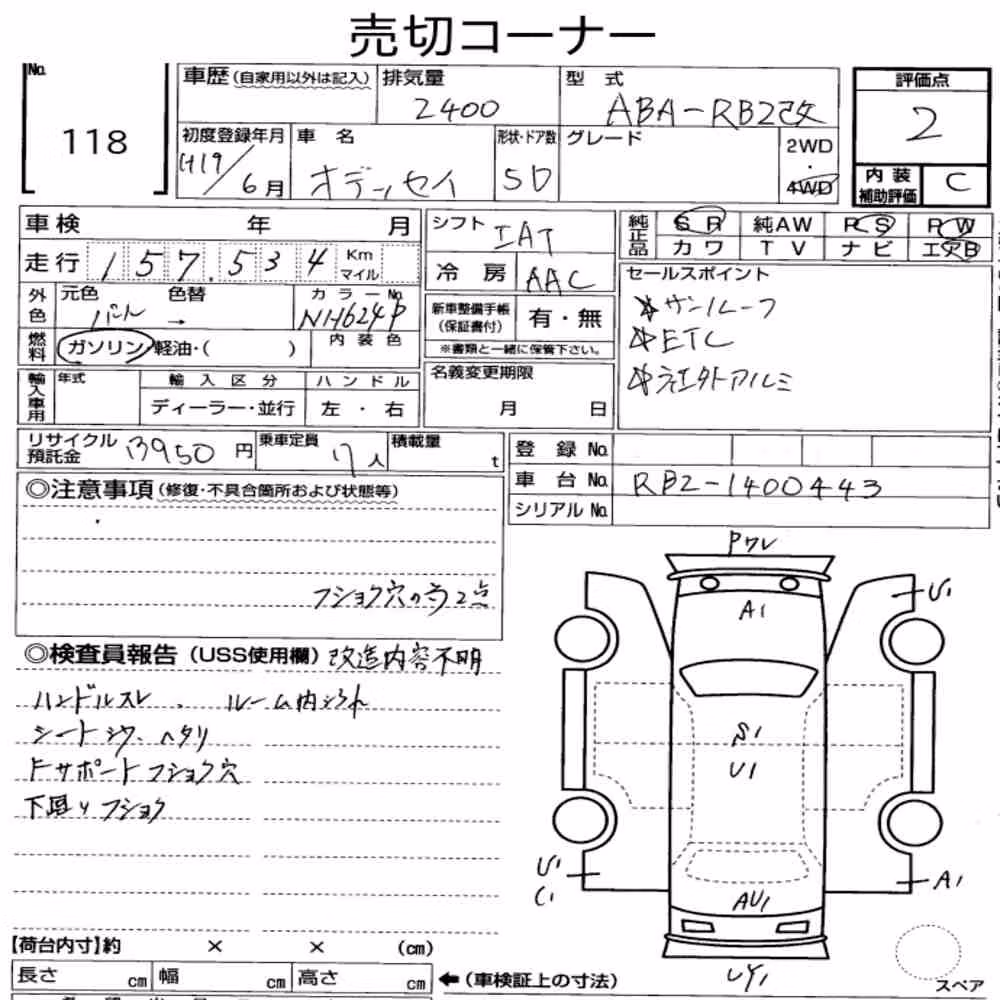 売切コーナー
No. 118
車歴(自家用以外は記入) 排気量 2400 型式 ABA-RB2改 評価点 2
初度登録年月 H19/6月 車名 オデッセイ 形状・ドア数 5D グレード 2WD・4WD 内装補助評価 C
車検 年 月 シフト IAT 純正品 SR 純AW PS PW
走行 157.534 Km マイル 冷房 AAC カワ TV ナビ エアB
外色 元色 パール 色替 → カラーNo. NH624P 新車整備手帳(保証書付) 有・無 セールスポイント
燃料 ガソリン・軽油・( ) 内装色 ※書類と一緒に保管下さい。 サンルーフ
ETC
社外アルミ
輸入車用 年式 輸入区分 ハンドル 名義変更期限
ディーラー・並行 左・右 月 日
リサイクル預託金 13950円 乗車定員 7人 積載量 t 登録No.
車台No. RB2-1400443
シリアルNo.
◎注意事項(修復・不具合箇所および状態等)
フショク穴の為2点
◎検査員報告(USS使用欄) 改造内容不明
ハンドルスレ、ルーム内ヨゴレ
シートシワ・ヘタリ
Fサポートフショク穴
下廻りフショク
Pワレ
A1
U1
S1
U1
U1
C1
A1
AU1
UY1
スペア
【荷台内寸】約 × × (cm)
長さ cm 幅 cm 高さ cm ←(車検証上の寸法)